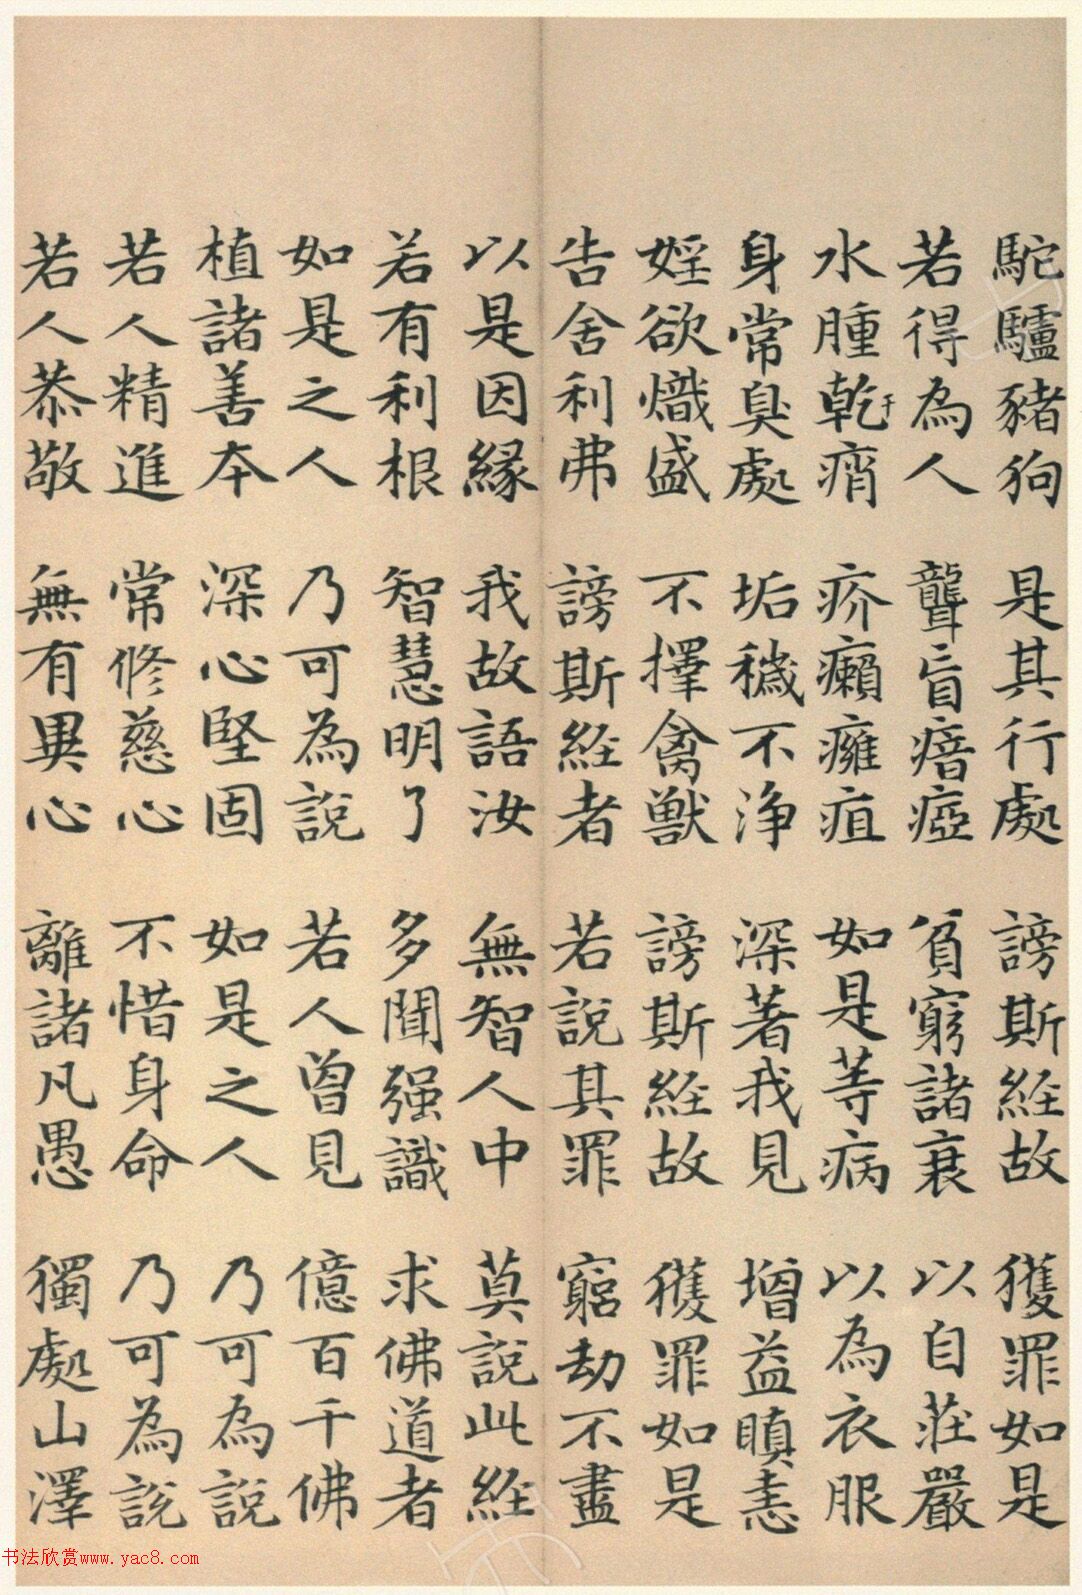 駝驢豬狗 是其行處 謗斯經故 獲罪如是
若得為人 聾盲瘖瘂 貧窮諸衰 以自莊嚴
水腫乾于痟 疥癩癰疽 如是等病 以為衣服
身常臭處 垢穢不淨 深著我見 增益瞋恚
婬欲熾盛 不擇禽獸 謗斯經故 獲罪如是
告舍利弗 謗斯經者 若說其罪 窮劫不盡
以是因緣 我故語汝 無智人中 莫說此經
若有利根 智慧明了 多聞强識 求佛道者
如是之人 乃可為說 若人曾見 億百千佛
植諸善本 深心堅固 如是之人 乃可為說
若人精進 常修慈心 不惜身命 乃可為說
若人恭敬 無有異心 離諸凡愚 獨處山澤
书法欣赏www.yac8.com